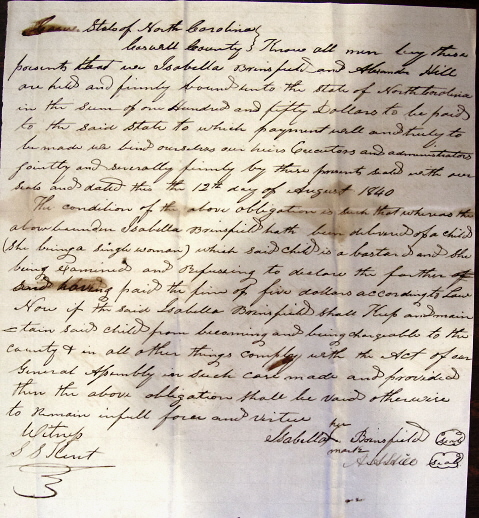 State of North Carolina
Caswell County } Know all men by these
presents that we Isabella Brinsfield and Alexander Hill
are held and firmly bound unto the State of North Carolina
in the Sum of one Hundred and fifty Dollars to be paid
to the said State to which payment well and truly to
be made we bind ourselves our heirs Executors and administrators
jointly and severally firmly by these presents seald with our
seals and dated this the 12th day of August 1840
The condition of the above obligation is such that whereas the
above bounden Isabella Brinsfield hath been delivered of a child
(she being a single woman) which said child is a bastard and she
being Examined and Refusing to declare the farther
said having paid the fine of five dollars according to Law
Now if the said Isabella Brinsfield shall Keep and main
=tain said child from becoming and being chargeable to the
county & in all other things comply with the Act of our
General Assembly in such case made and provided
then the above obligation shall be void otherwise
to remain in full force and virtue
Witness
her
Isabella X Brinsfield (Seal)
mark
S S Kent
Hill (Seal)